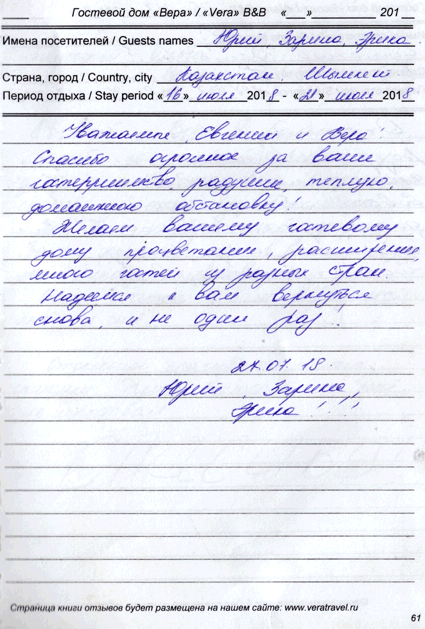 Гостевой дом «Вера» / «Vera» B&B «___» ____________ 201 __
Имена посетителей / Guests names Юрий Зарина, Эрика.
Страна, город / Country, city Казахстан. Шымкент
Период отдыха / Stay period «16» июля 2018 - «21» июля 2018
Уважаемые, Евгений и Вера!
Спасибо огромное за ваше
гостеприимство, радушие, теплую,
домашнюю обстановку!
Желаем вашему гостевому
дому процветания, расширения,
много гостей из разных стран.
Надеемся к вам вернуться
снова, и не один раз!
27.07.18.
Юрий, Зарина,
Эрика!!!
Страница книги отзывов будет размещена на нашем сайте: www.veratravel.ru
61